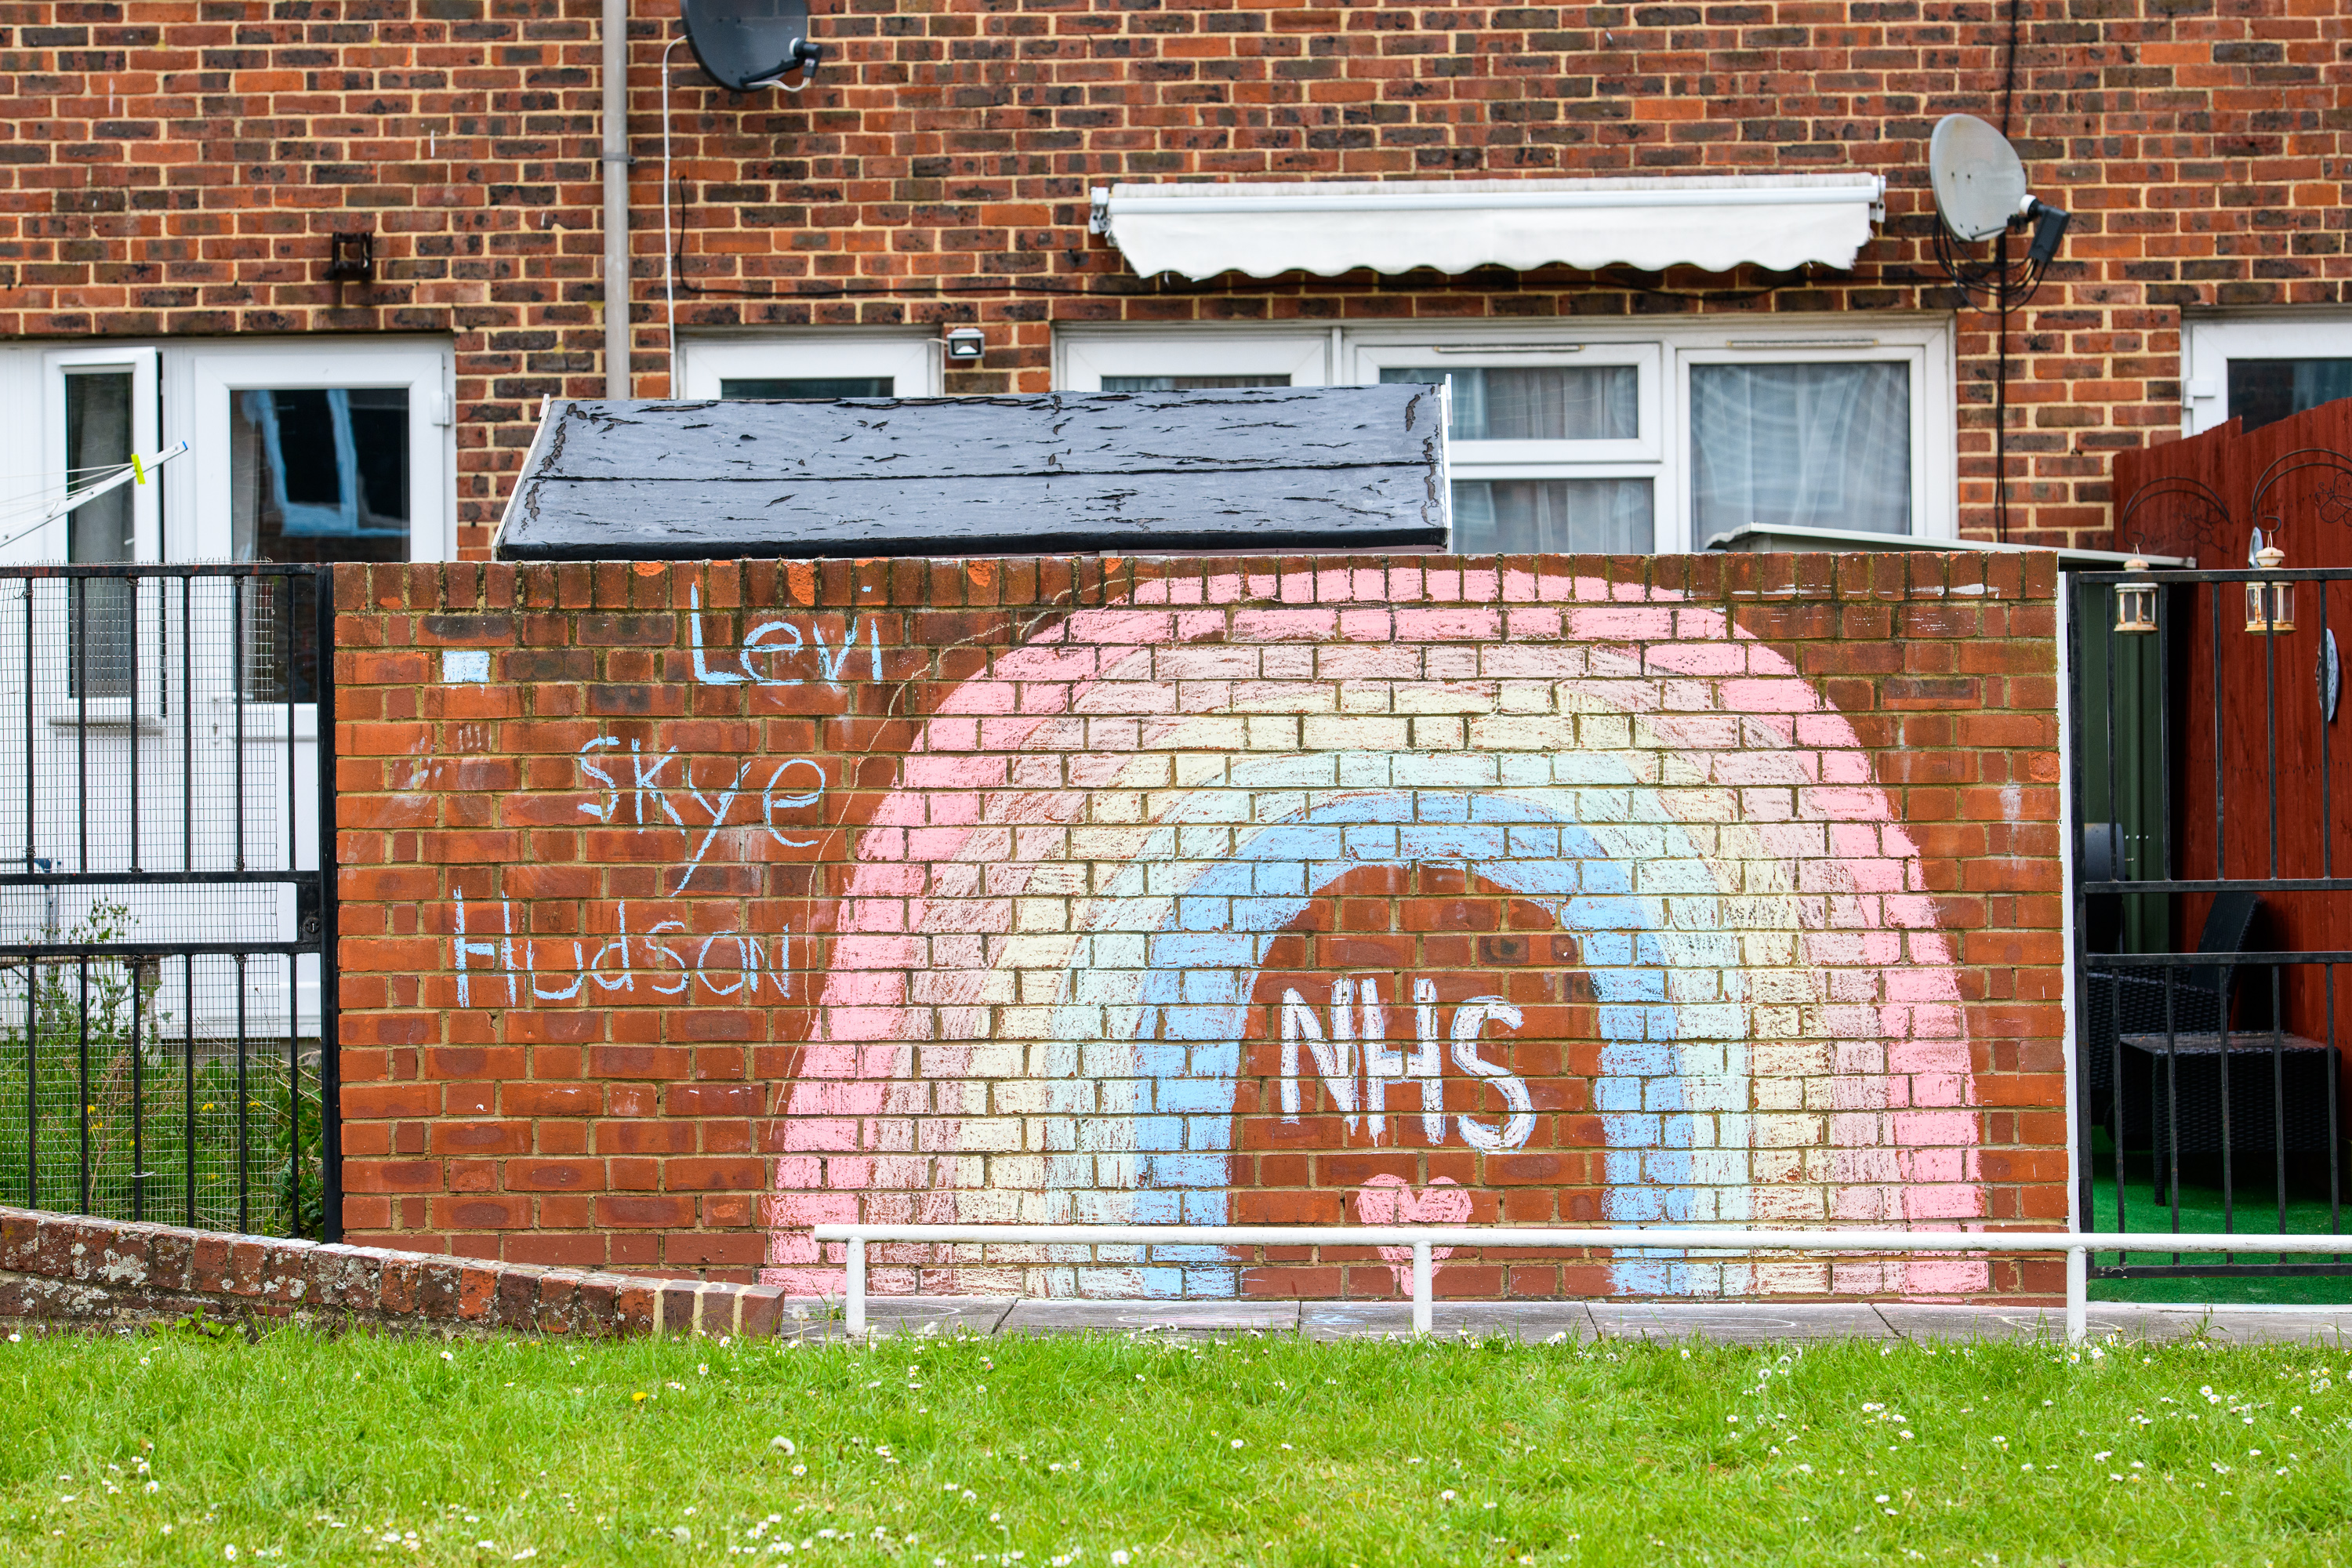 Levi
Skye
Hudson
NHS